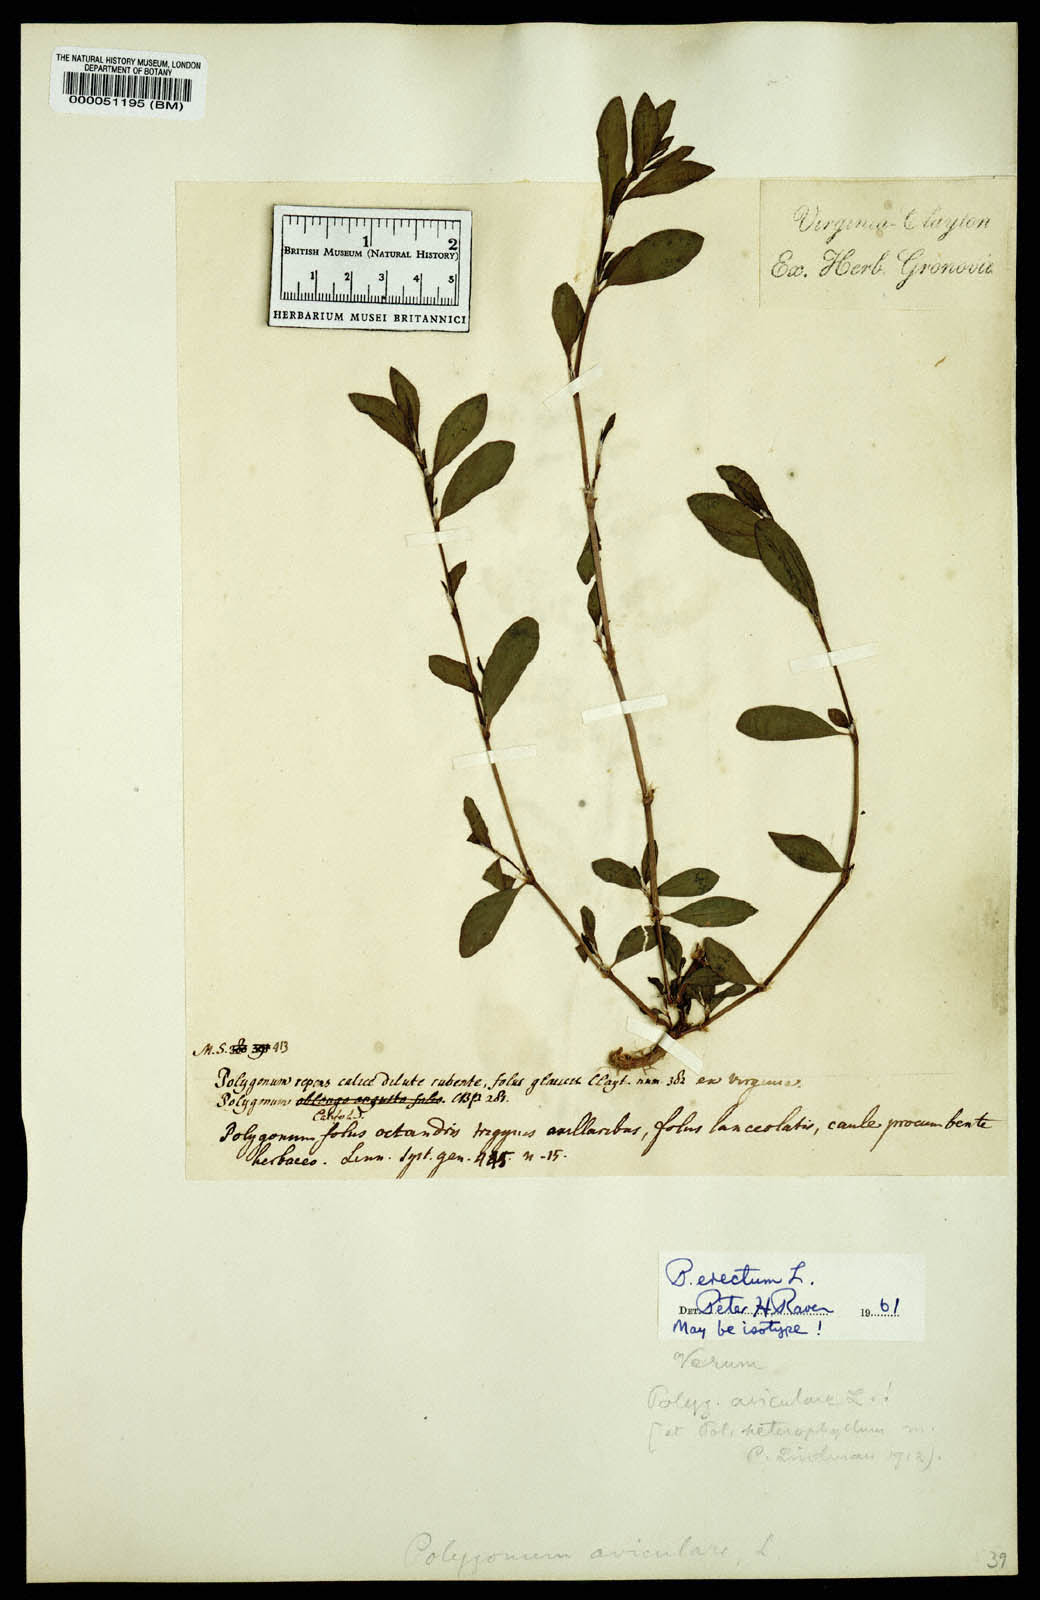 THE NATURAL HISTORY MUSEUM, LONDON
DEPARTMENT OF BOTANY
000051195 (BM)
1 2
BRITISH MUSEUM (NATURAL HISTORY)
1 2 3 4 5
HERBARIUM MUSEI BRITANNICI
Virginia - Clayton
Ex. Herb. Gronovii
M.S. 413
Polygonum repens calice dilute rubente, foliis glaucis Clayt. num 382 ex Virginia.
Polygonum oblongo angusto folio. CBp 281.
Polygonum foliis octandris trigynis axillaribus, foliis lanceolatis, caule procumbente
herbaceo. Linn. Syst. gen. 445. n. 15.
P. erectum L.
DET. Peter H. Raven 1961
May be isotype!
Verum
Polyg. aviculare L.!
[et Pol. heterophyllum m.
C. Lindman 1912).
Polygonum aviculare, L.
39